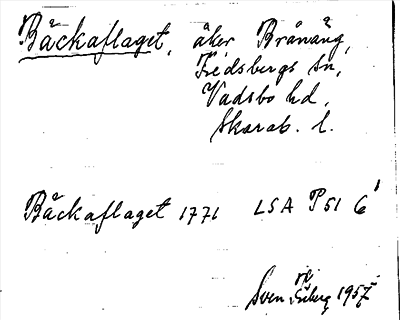 Bäckaflaget, åker Brånäng,
Fredsbergs sn,
Vadsbo hd,
Skarab. l.
Bäckaflaget 1771 LSA P51 6¹
Sven 1957